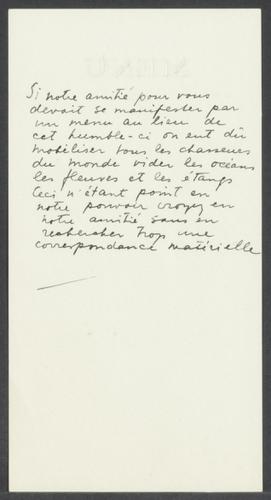 Si notre amitié pour vous
devait se manifester par
un menu au lieu de
cet humble-ci on eut dû
mobiliser tous les chasseurs
du monde vider les océans
les fleuves et les étangs
Ceci n'étant point en
notre pouvoir croyez en
notre amitié sans en
rechercher trop une
correspondance matérielle